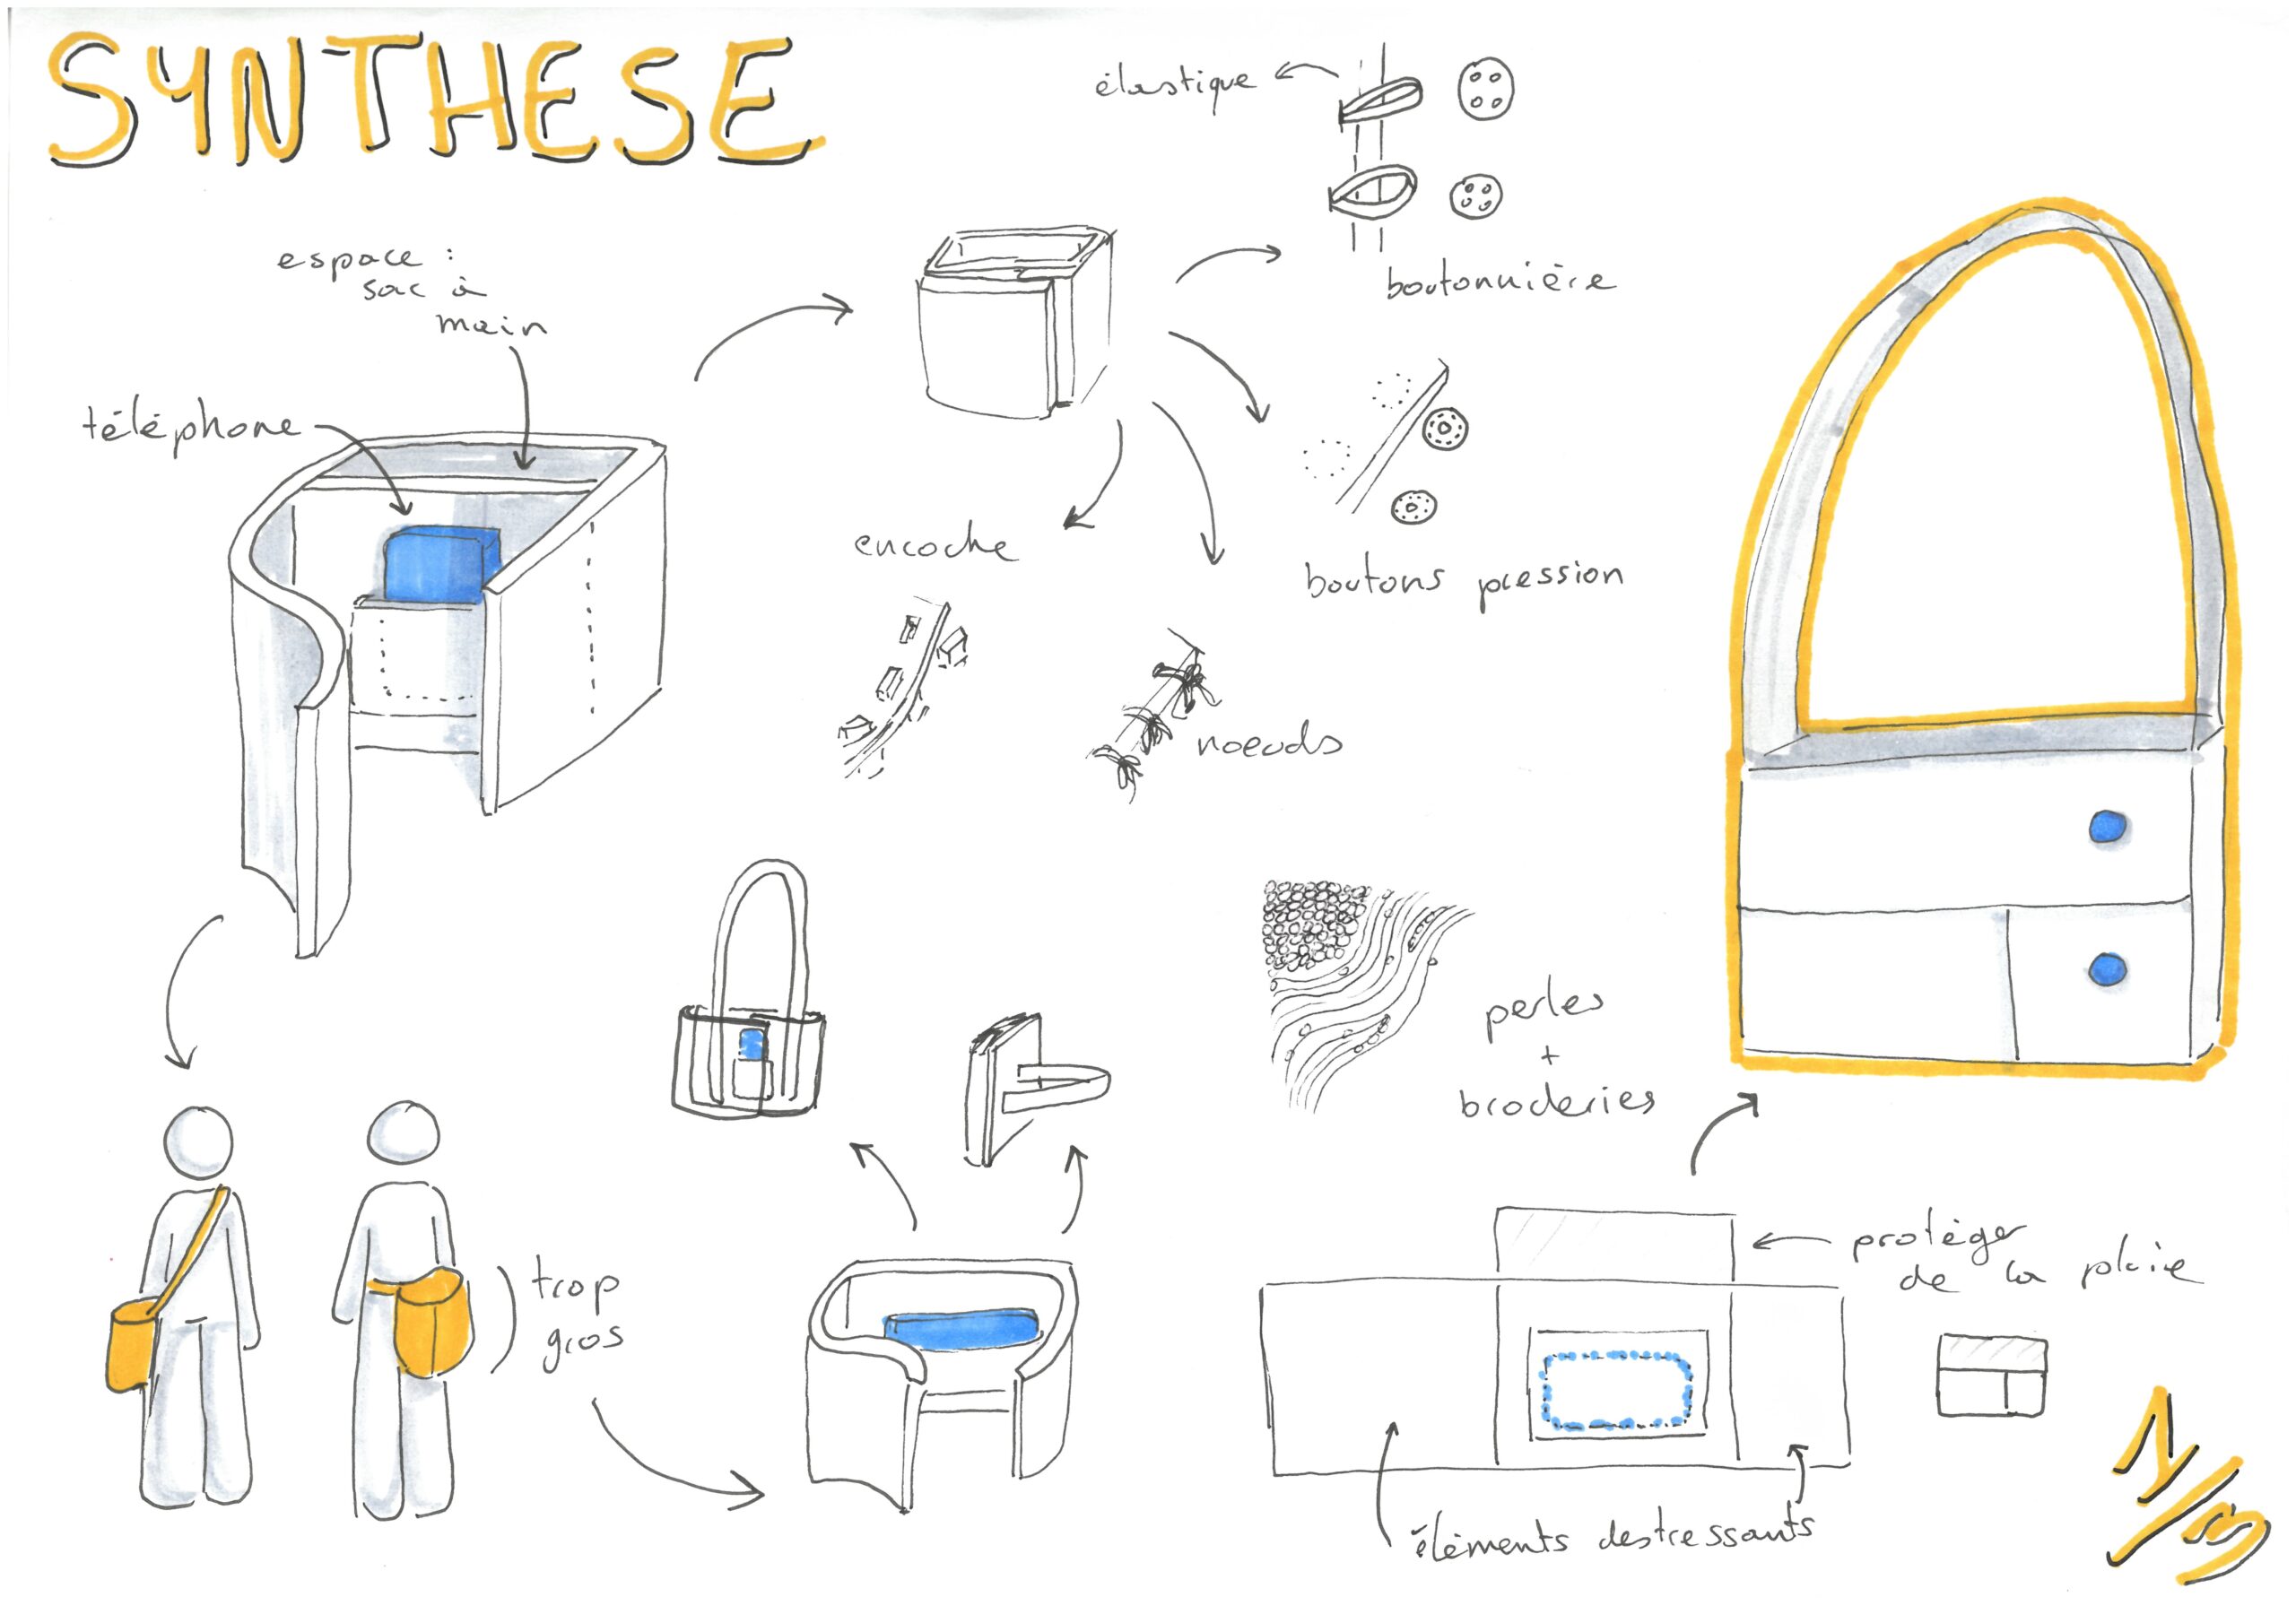 SYNTHESE
élastique
boutonnière
espace :
sac à
main
téléphone
encoche
boutons pression
noeuds
perles
+
broderies
trop
gros
protéger
de la pluie
éléments destressants
1/3